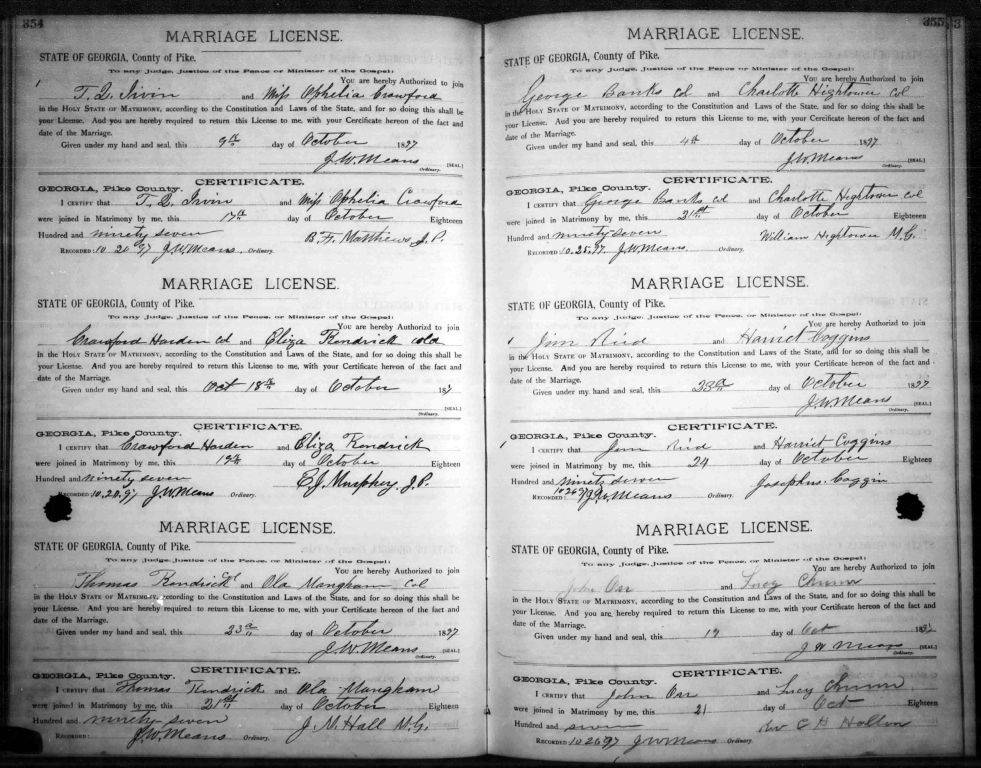 354
MARRIAGE LICENSE.
STATE OF GEORGIA, County of Pike.
To any Judge, Justice of the Peace or Minister of the Gospel:
You are hereby Authorized to join
T. Q. Irvin and Miss Ophelia Crawford
in the HOLY STATE OF MATRIMONY, according to the Constitution and Laws of the State, and for so doing this shall be
your License. And you are hereby required to return this License to me, with your Certificate hereon of the fact and
date of the Marriage.
Given under my hand and seal, this 9th day of October 1897
J.W. Means [SEAL.]
Ordinary.
CERTIFICATE.
GEORGIA, Pike County.
I CERTIFY that T. Q. Irvin and Miss Ophelia Crawford
were joined in Matrimony by me, this 17th day of October Eighteen
Hundred and ninety seven B. F. Matthews J. P.
RECORDED: 10 21 97 J.W. Means Ordinary.
MARRIAGE LICENSE.
STATE OF GEORGIA, County of Pike.
To any Judge, Justice of the Peace, or Minister of the Gospel:
You are hereby Authorized to join
Crawford Harden cd and Eliza Kendrick cold
in the HOLY STATE OF MATRIMONY, according to the Constitution and Laws of the State, and for so doing this shall be
your License. And you are hereby required to return this License to me, with your Certificate hereon of the fact and
date of the Marriage.
Given under my hand and seal, this Oct 18th day of October 189
[SEAL.]
Ordinary.
CERTIFICATE.
GEORGIA, Pike County.
I CERTIFY that Crawford Harden and Eliza Kendrick
were joined in Matrimony by me, this 19th day of October Eighteen
Hundred and ninety seven E.J. Murphey, J.P.
RECORDED: 10.20.97 J.W. Means Ordinary.
MARRIAGE LICENSE.
STATE OF GEORGIA, County of Pike.
To any Judge, Justice of the Peace, or Minister of the Gospel:
You are hereby Authorized to join
Thomas Kendrick and Ola Mangham Col
in the HOLY STATE OF MATRIMONY, according to the Constitution and Laws of the State, and for so doing this shall be
your License. And you are hereby required to return this License to me, with your Certificate hereon of the fact and
date of the Marriage.
Given under my hand and seal, this 23d day of October 1897
J.W. Means [SEAL.]
Ordinary.
CERTIFICATE.
GEORGIA, Pike County.
I CERTIFY that Thomas Kendrick and Ola Mangham
were joined in Matrimony by me, this 21st day of October Eighteen
Hundred and ninety seven J. N. Hall M.G.
RECORDED: J.W. Means Ordinary.
355
MARRIAGE LICENSE.
STATE OF GEORGIA, County of Pike.
To any Judge, Justice of the Peace or Minister of the Gospel:
You are hereby Authorized to join
George Banks cd and Charlotte Hightower col
in the HOLY STATE OF MATRIMONY, according to the Constitution and Laws of the State, and for so doing this shall be
your License. And you are hereby required to return this License to me, with your Certificate hereon of the fact and
date of the Marriage.
Given under my hand and seal, this 4th day of October 1897
J.W. Means [SEAL.]
Ordinary.
CERTIFICATE.
GEORGIA, Pike County.
I CERTIFY that George Banks cd and Charlotte Hightower col
were joined in Matrimony by me, this 21st day of October Eighteen
Hundred and ninety seven William Hightower M.G.
RECORDED: 10.25.97. J.W. Means. Ordinary.
MARRIAGE LICENSE.
STATE OF GEORGIA, County of Pike.
To any Judge, Justice of the Peace, or Minister of the Gospel:
You are hereby Authorized to join
Jim Reid and Harriet Coggins
in the HOLY STATE OF MATRIMONY, according to the Constitution and Laws of the State, and for so doing this shall be
your License. And you are hereby required to return this License to me, with your Certificate hereon of the fact and
date of the Marriage.
Given under my hand and seal, this 23d day of October 1897
J.W. Means [SEAL.]
Ordinary.
CERTIFICATE.
GEORGIA, Pike County.
I CERTIFY that Jim Reid and Harriet Coggins
were joined in Matrimony by me, this 24 day of October Eighteen
Hundred and ninety seven Josephus Coggin
RECORDED: 10 26 97 J.W. Means Ordinary.
MARRIAGE LICENSE.
STATE OF GEORGIA, County of Pike.
To any Judge, Justice of the Peace, or Minister of the Gospel:
You are hereby Authorized to join
John Orr and Lucy
in the HOLY STATE OF MATRIMONY, according to the Constitution and Laws of the State, and for so doing this shall be
your License. And you are hereby required to return this License to me, with your Certificate hereon of the fact and
date of the Marriage.
Given under my hand and seal, this 19 day of Oct 1897
J W Means [SEAL.]
Ordinary.
CERTIFICATE.
GEORGIA, Pike County.
I CERTIFY that John Orr and Lucy
were joined in Matrimony by me, this 21 day of Oct Eighteen
Hundred and Rev C H Holton
RECORDED 10 26 97 J W Means Ordinary.